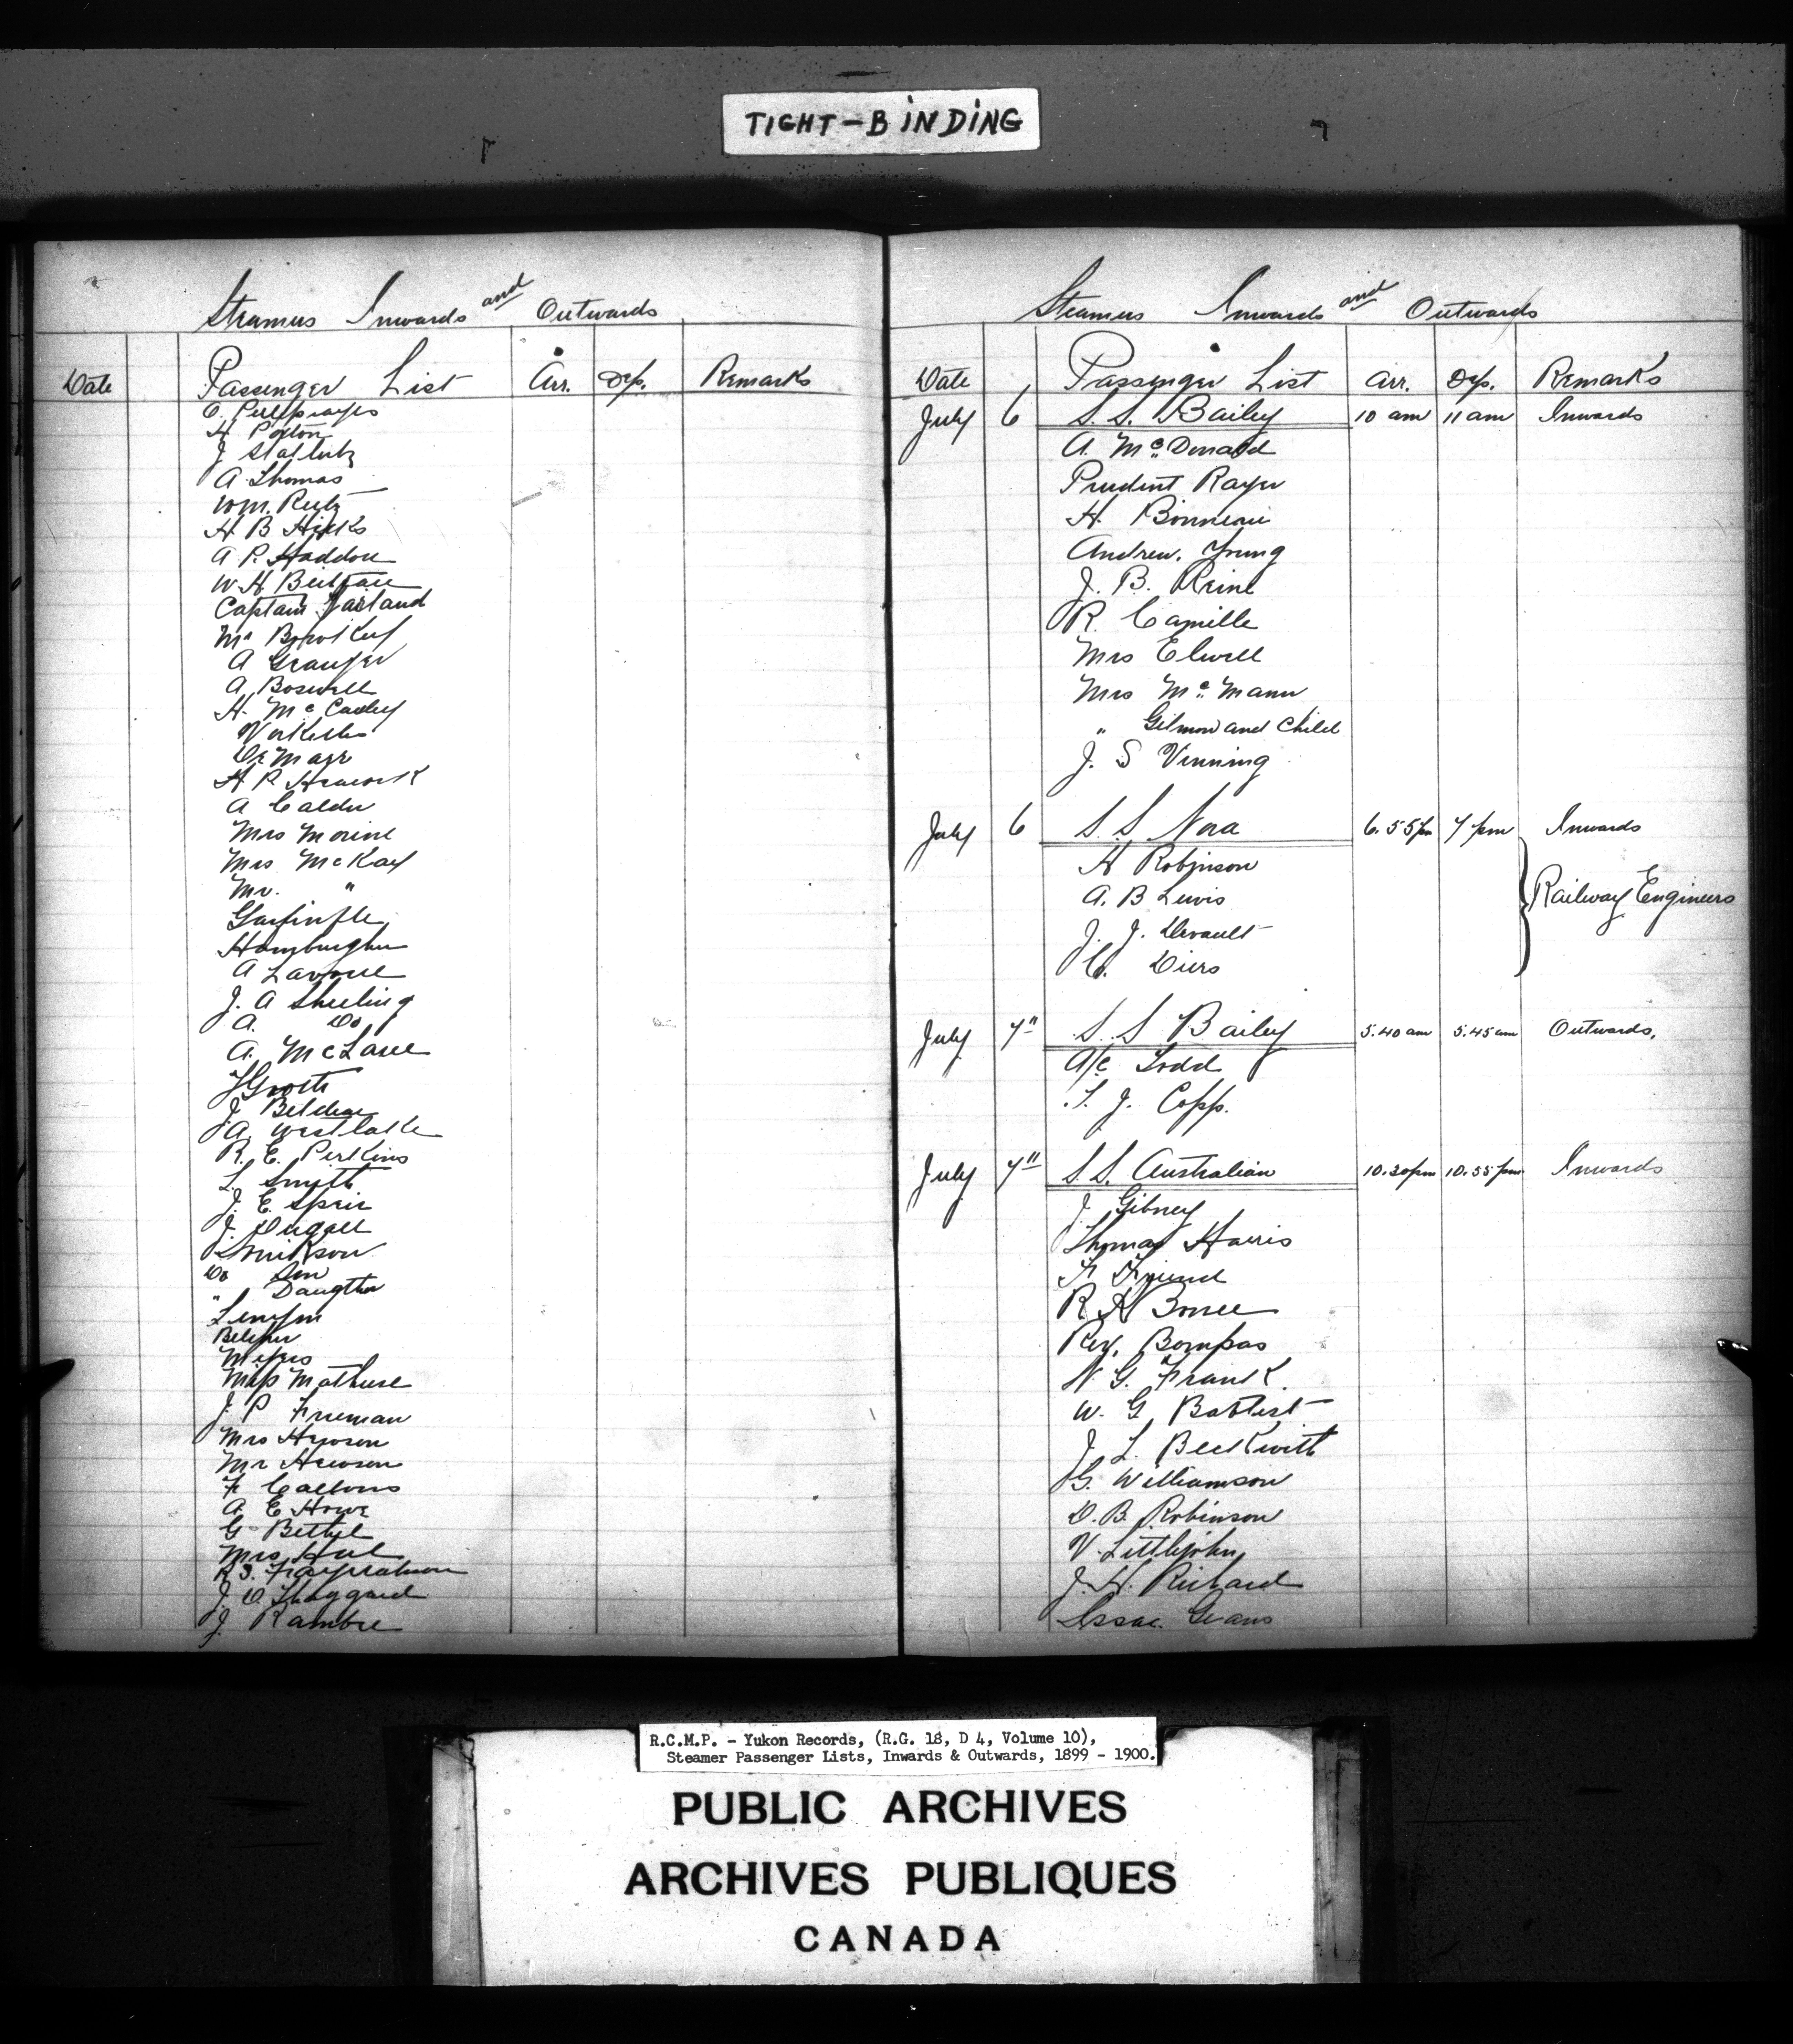 TIGHT-BINDING
Steamers Inwards and Outwards
Date Passenger List Arr. Dep. Remarks
H Poxton
A Thomas
Wm. Reitz
H B Hicks
A P. Haddon
W. H.
Captain
Mr
A Granger
A Boswell
H. McCauley
De Mayr
H P.
A Calder
Mrs Morine
Mrs McKay
Mr. "
Hamburgher
A
J. A Sheeling
A. Do
A. McLane
J Belcher
A. Westlake
R. E. Perkins
L. Smith
J. E. Speir
J. Dugall
Do Son
" Daugther
Belcher
Meyers
Miss
J. P Freeman
Mrs Hewson
Mr Hewson
F
A. E Howe
G Bethel
Mrs
R S.
J. O.
J. Rambre
Steamers Inwards and Outwards
Date Passenger List Arr. Dep. Remarks
July 6 S. S. Bailey 10 am 11 am Inwards
A. McDonald
Prudent Rayer
H. Bonneau
Andrew. Young
J. B. Reine
R. Camille
Mrs Elwell
Mrs McMann
" Gilmour and Child
J. S Vinning
July 6 S. S Nora 6.55 pm 7 pm Inwards
H Robinson
A. B Lewis
Railway Engineers
J. J. Devault
C. Diers
July 7" S. S Bailey 5.40 am 5.45 am Outwards.
A/c Todd
T. J. Copp.
July 7" S. S. Australian 10.30 pm 10.55 pm Inwards
J Gibney
Thomas Harris
F Freund
R H
Rev. Bompas
N G. Frank
W. G. Babtist
J L. Beckwith
G. Williamson
D. B. Robinson
V. Littlejohn
J. H. Richard
Issac Evans
R.C.M.P. - Yukon Records, (R.G. 18, D 4, Volume 10),
Steamer Passenger Lists, Inwards & Outwards, 1899 - 1900.
PUBLIC ARCHIVES
ARCHIVES PUBLIQUES
CANADA